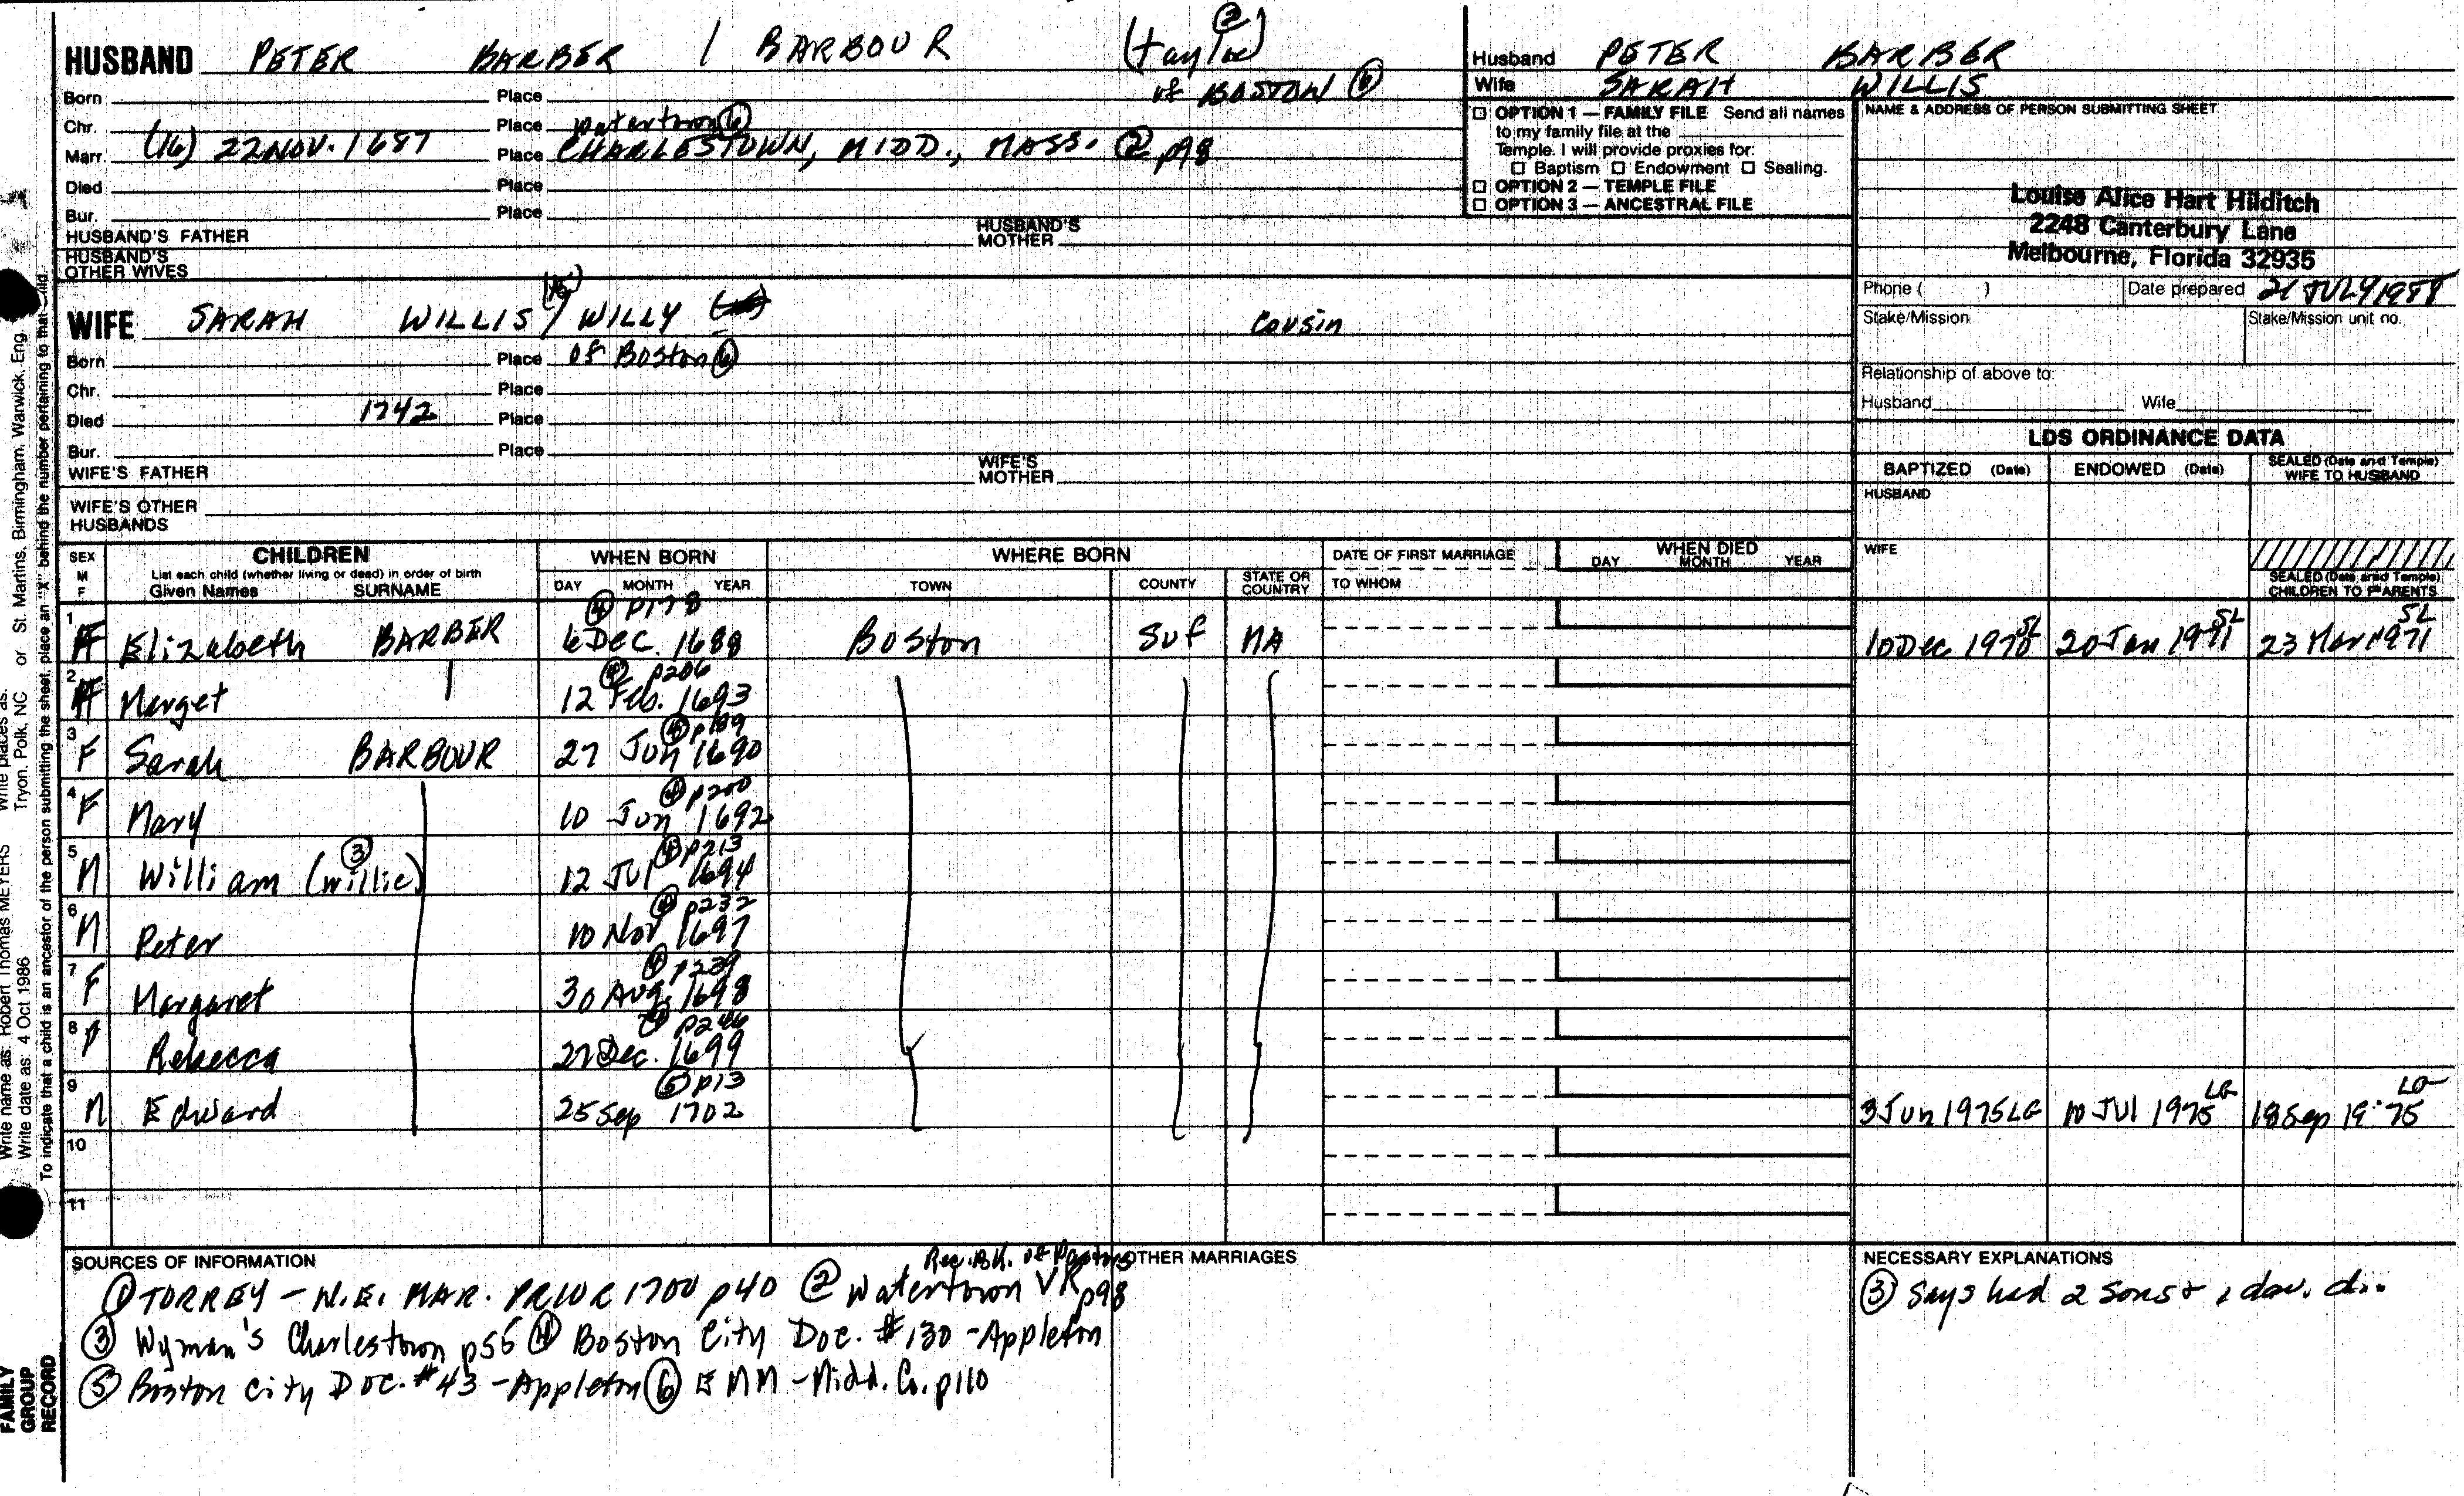 HUSBAND PETER BARBER / BARBOUR (taylor) ③
of BOSTON ⑥
Born Place
Chr. Place watertown ⑥
Marr. (16) 22 NOV. 1687 Place CHARLESTOWN, MIDD., MASS. ② p98
Died Place
Bur. Place
HUSBAND'S FATHER HUSBAND'S MOTHER
HUSBAND'S OTHER WIVES
WIFE SARAH WILLIS / WILLY cousin
Born Place of Boston ⑥
Chr. Place
Died 1742 Place
Bur. Place
WIFE'S FATHER WIFE'S MOTHER
WIFE'S OTHER HUSBANDS
Husband PETER BARBER
Wife SARAH WILLIS
☐ OPTION 1 — FAMILY FILE Send all names
to my family file at the
Temple. I will provide proxies for:
☐ Baptism ☐ Endowment ☐ Sealing.
☐ OPTION 2 — TEMPLE FILE
☐ OPTION 3 — ANCESTRAL FILE
NAME & ADDRESS OF PERSON SUBMITTING SHEET
Louise Alice Hart Hilditch
2248 Canterbury Lane
Melbourne, Florida 32935
Phone ( ) Date prepared 21 JULY 1988
Stake/Mission Stake/Mission unit no.
Relationship of above to:
Husband Wife
LDS ORDINANCE DATA
BAPTIZED (Date) ENDOWED (Date) SEALED (Date and Temple) WIFE TO HUSBAND
HUSBAND
WIFE
SEALED (Date and Temple) CHILDREN TO PARENTS
SEX M F CHILDREN WHEN BORN WHERE BORN DATE OF FIRST MARRIAGE WHEN DIED
List each child (whether living or dead) in order of birth
Given Names SURNAME DAY MONTH YEAR TOWN COUNTY STATE OR COUNTRY TO WHOM DAY MONTH YEAR
④ p178
1 F Elizabeth BARBER 6 Dec. 1688 Boston Suf MA 10 Dec 1970 SL 20 Jan 1971 SL 23 Mar 1971 SL
④ p206
2 F Marget 12 Feb. 1693
④ p189
3 F Sarah BARBOUR 27 Jun 1690
④ p200
4 F Mary 10 Jun 1692
④ p213
5 M William (willie) ③ 12 Jul 1694
④ p232
6 M Peter 10 Nov 1697
④ p239
7 F Margaret 30 Aug. 1698
④ p246
8 Rebecca 27 Dec. 1699
⑤ p13
9 M Edward 25 Sep 1702 3 Jun 1975 LG 10 Jul 1975 LG 18 Sep 19 75 LG
10
11
SOURCES OF INFORMATION Rec. Bk. of Pastors
① TORREY - N.E. MAR. PRIOR 1700 p40 ② Watertown VR p98
③ Wyman's Charlestown p55 ④ Boston City Doc. #130 - Appleton
⑤ Boston City Doc. #43 - Appleton ⑥ EMM - Midd. Co. p110
OTHER MARRIAGES
NECESSARY EXPLANATIONS
③ Says had 2 sons + 1 dau.
FAMILY GROUP RECORD
Write name as: Robert Thomas MEYERS Write places as: Tryon, Polk, NC or St. Martins, Birmingham, Warwick, Eng
Write date as: 4 Oct 1986
To indicate that a child is an ancestor of the person submitting the sheet, place an "X" behind the number pertaining to that child.